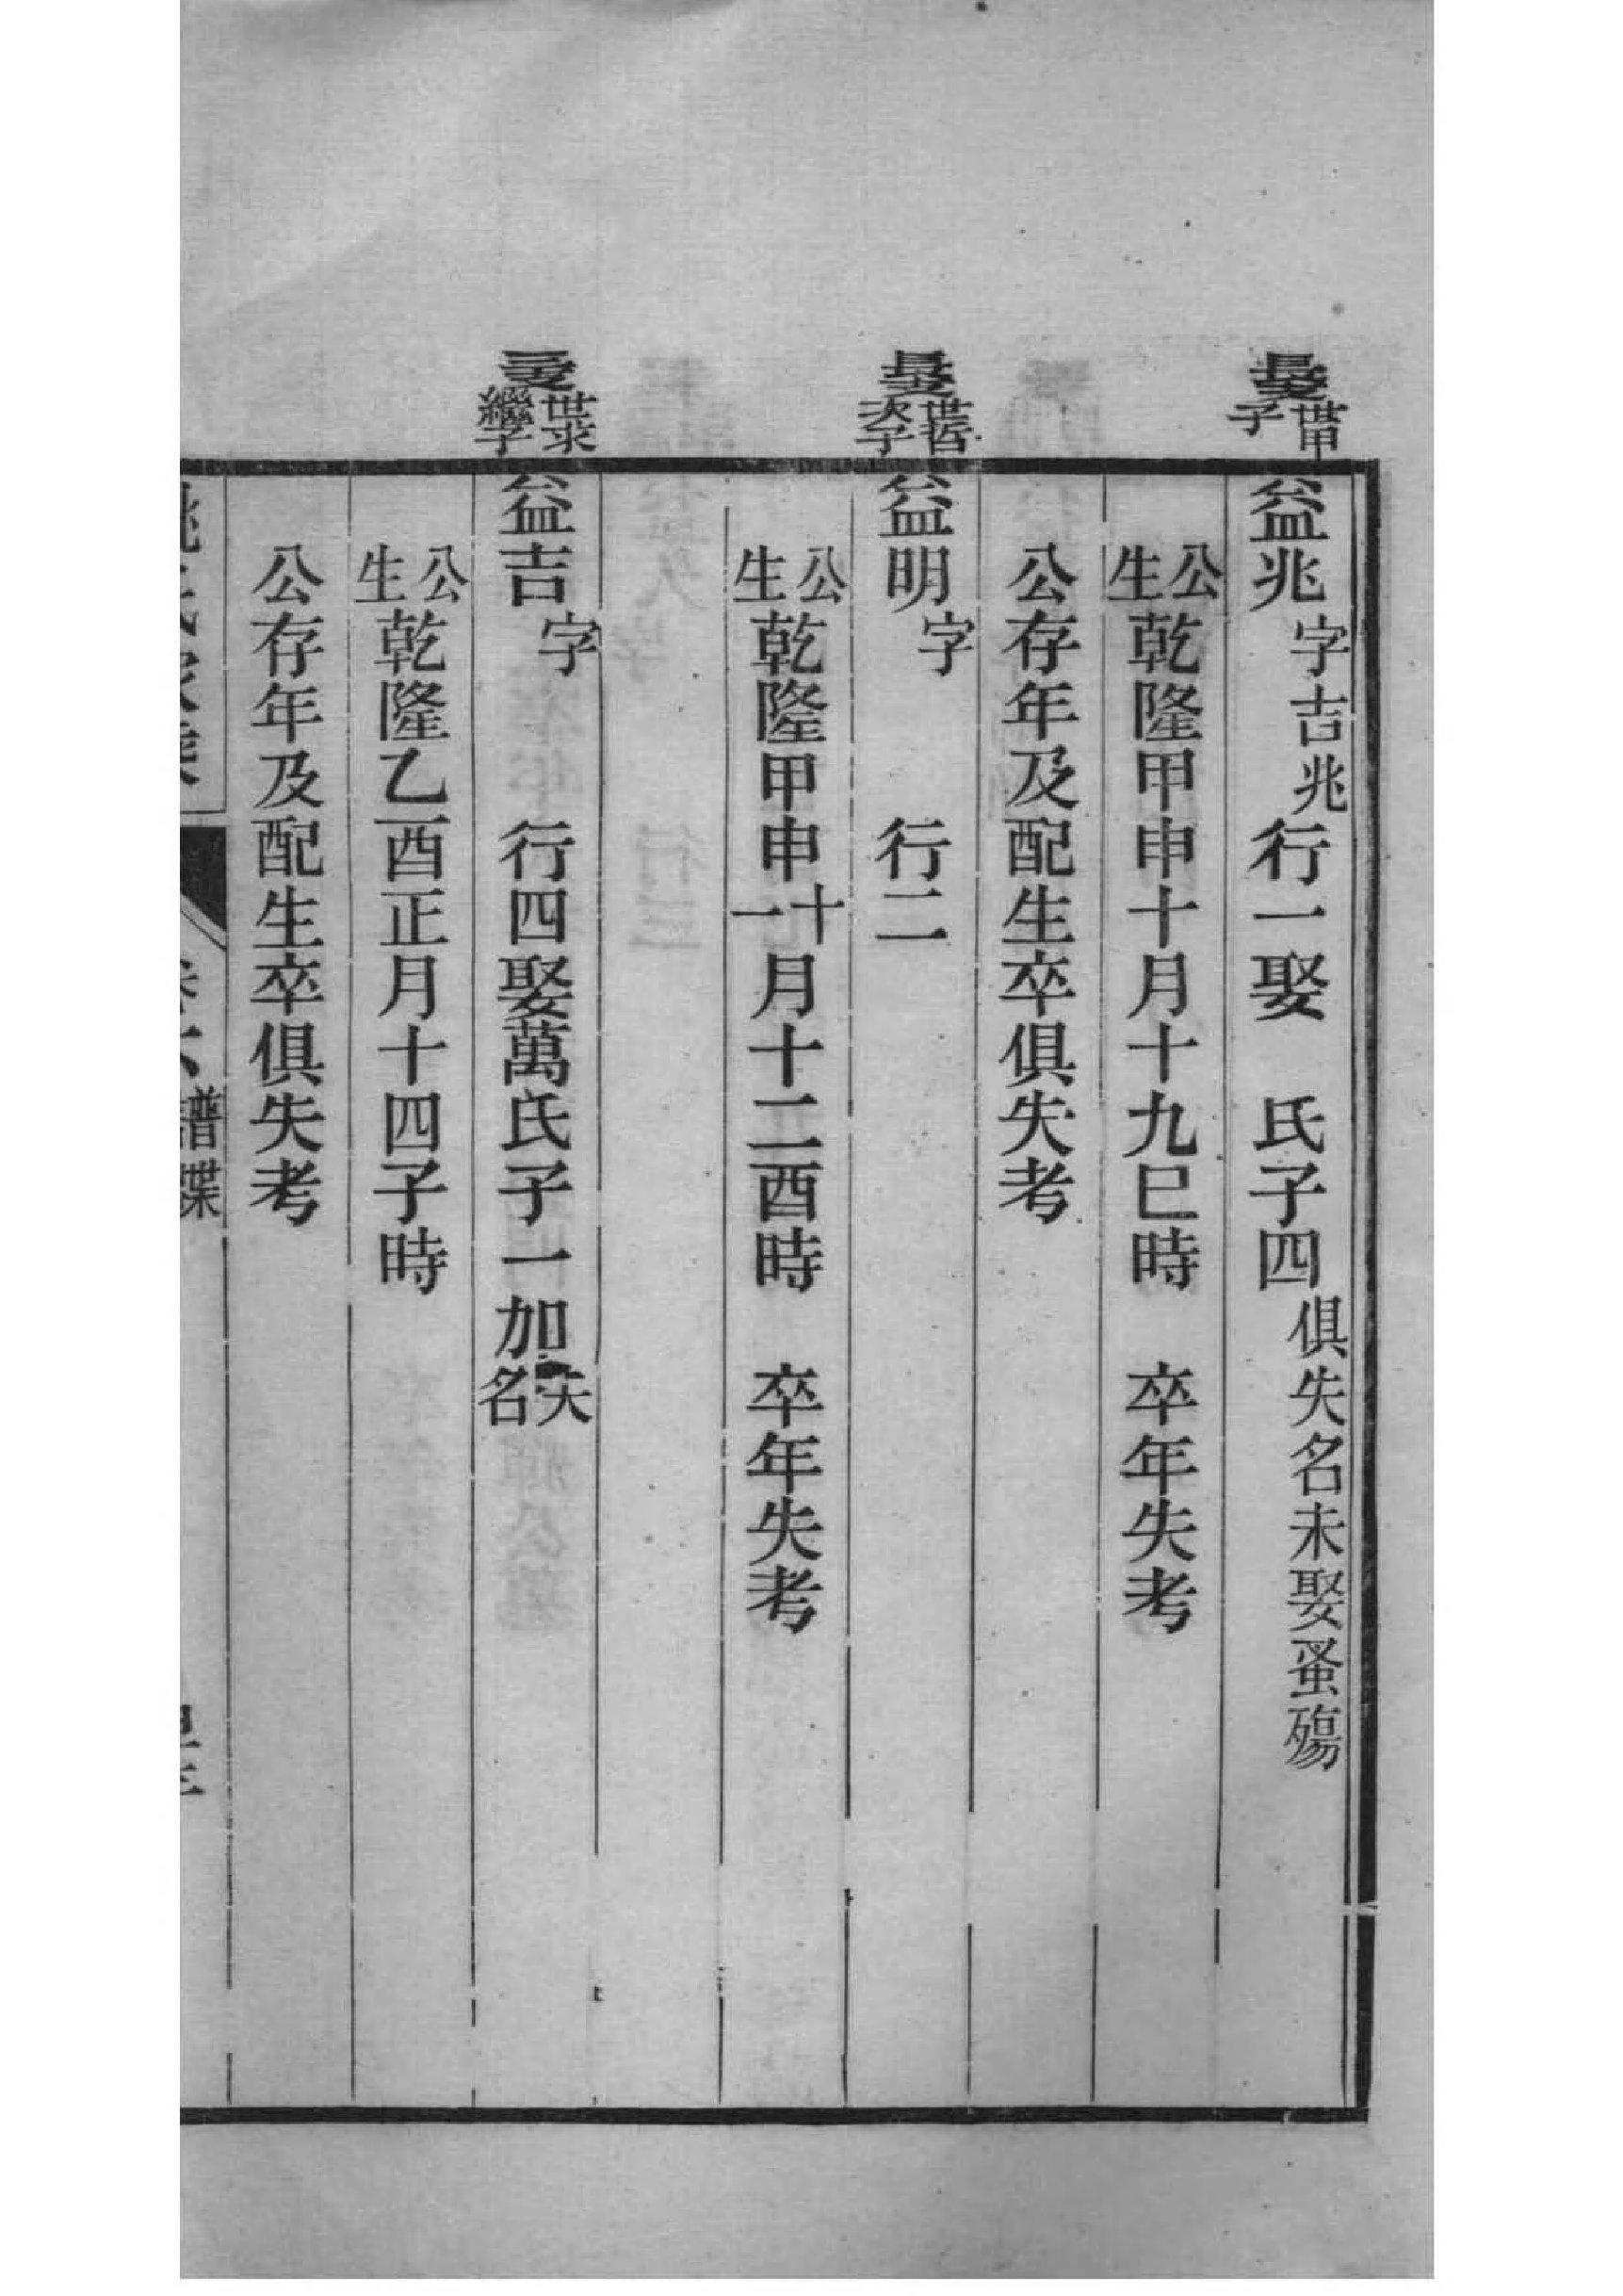 世甲子
益兆字吉兆行一娶　氏子四俱失名未娶蚤殤
公生乾隆甲申十月十九巳時　卒年失考
公存年及配生卒俱失考
世哲次子
益明字　行二
公生乾隆甲申十一月十二酉時　卒年失考
世求繼子
益吉字　行四娶萬氏子一加失名
公生乾隆乙酉正月十四子時
公存年及配生卒俱失考
譜牒